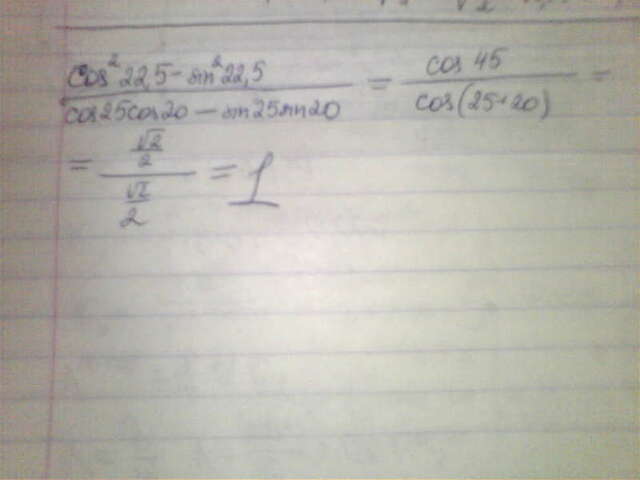 cos²22,5-sin²22,5 / cos25cos20-sin25sin20 = cos45 / cos(25+20) =
= √2/2 / √2/2 = 1